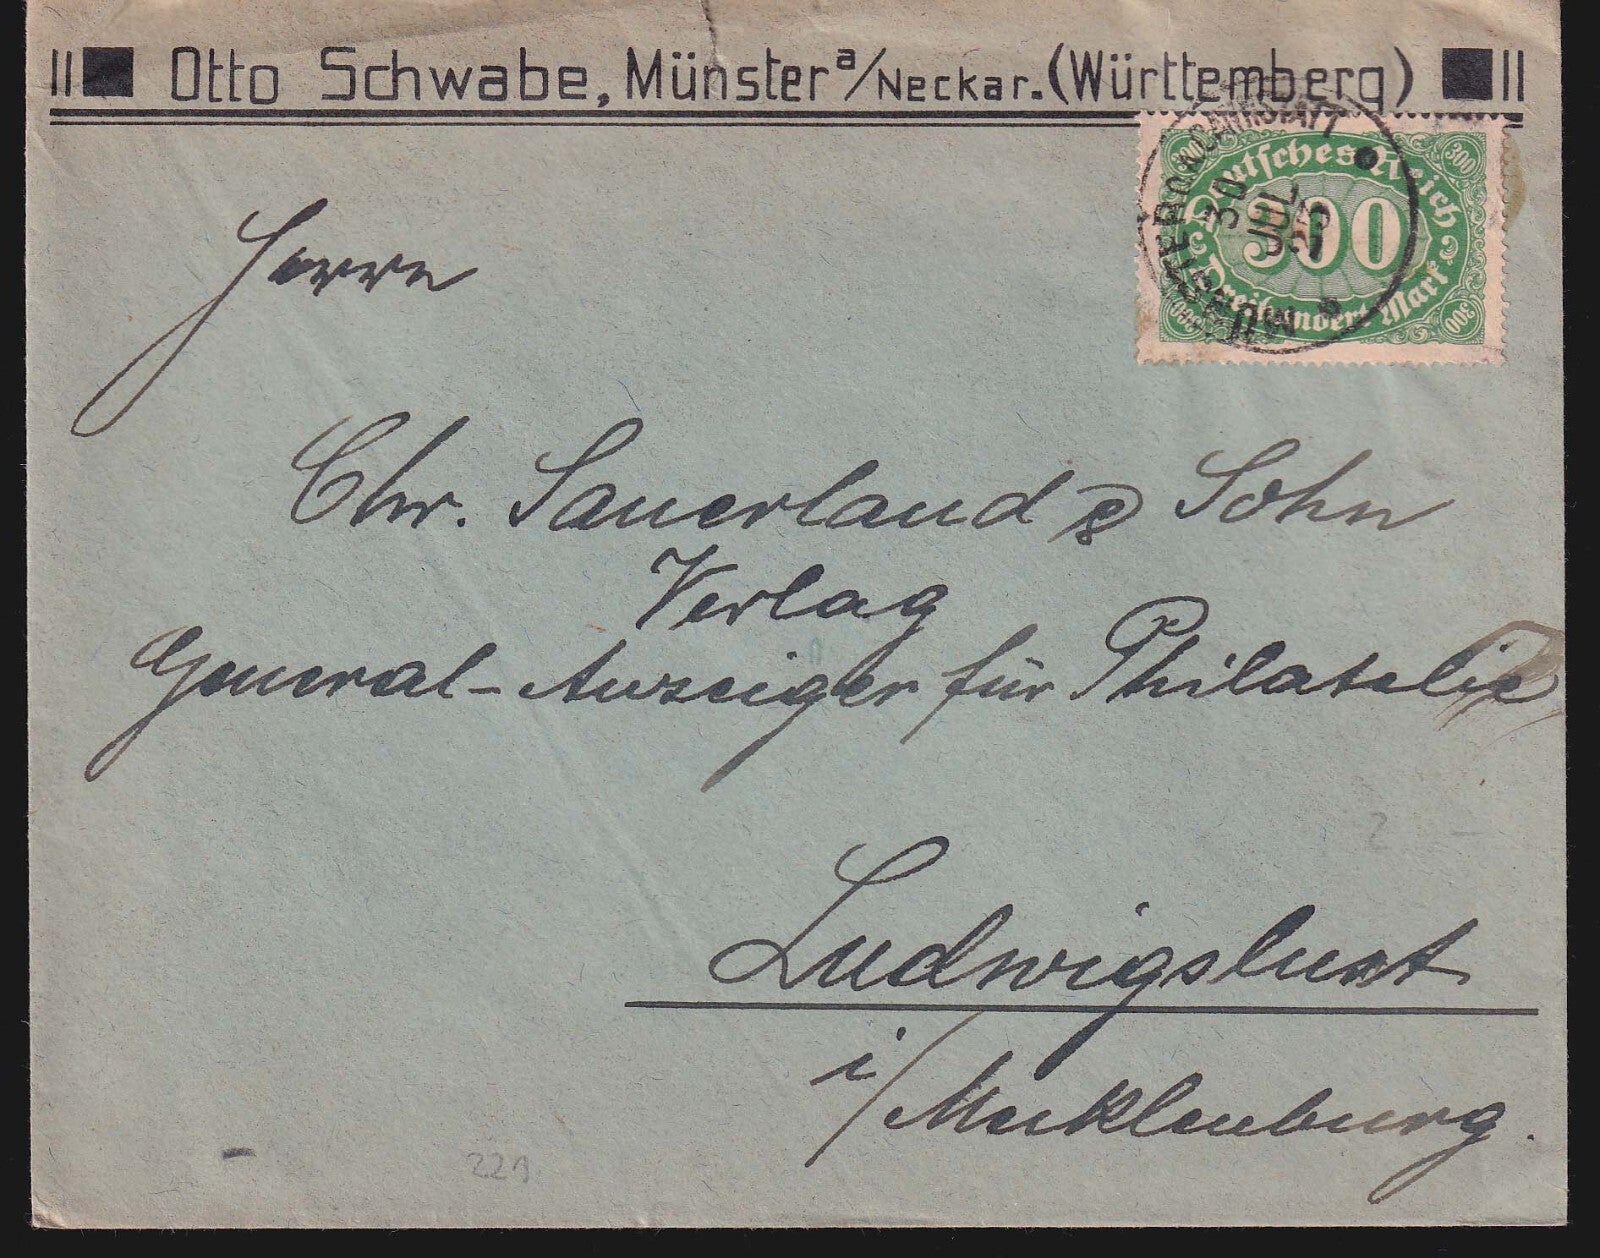 Otto Schwabe, Münster a/Neckar. (Württemberg)
MÜNSTER O.A. CANNSTATT
30 JUL 23
300 300
Deutsches Reich
300
Dreihundert Mark
300 300
Herrn
Chr. Sauerland & Sohn
Verlag
General-Anzeiger für Philatelie
Ludwigslust
i/Mecklenburg.
221